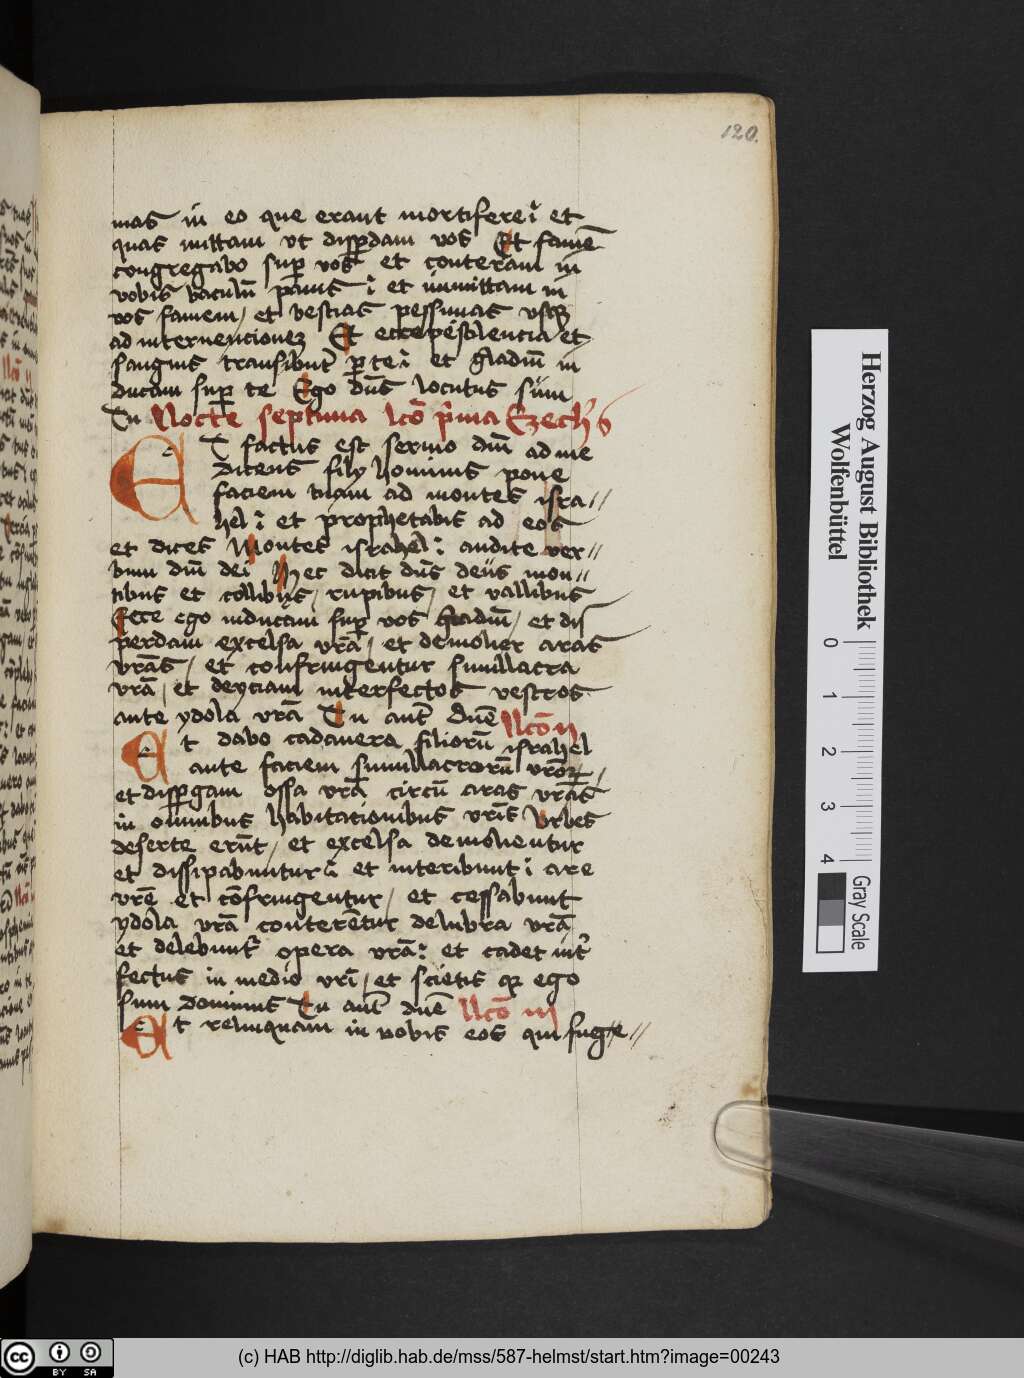 120.
mas in eo que erant mortifere : et
quas mittam ut disꝑdam vos Et famē
congregabo suꝑ vos et conteram in
vobis baculū panis : et inmittam in
vos famem / et bestias pessimas vsqꝫ
ad internencionez Et et pestilencia et
sanguis transibūt ꝑ te : et gladiū in
ducam suꝑ te Ego dn̄s locutus sum
Tu Nocte septima lcō pͥma Ezech̓ 6
ET factus est sermo dn̄i ad me
dicens fily hominis pone
faciem tuam ad montes isra//
hel : et prophetabis ad eos
et dices Montes israhel : audite ver//
bum dn̄i dei Hec dicit dn̄s deus mon//
tibus et collibus / rupibus / et vallibus
Ecce ego inducam suꝑ vos gladiū / et dis
perdam excelsa vr̄a / et demoliar aras
vr̄as / et confringentur simillacra
vr̄a / et deyciam interfectos vestros
ante ydola vr̄a Tu aut̄ dn̄e llcō ii
Et dabo cadauera filiorū israhel
ante faciem simillacrorū vr̄oꝝ /
et disꝑgam ossa vr̄a circū aras vr̄as
in omnibus habitacionibus vr̄is Vrbes
deserte erūt / et excelsa demolientur
et dissipabuntur : et interibunt : are
vr̄e et cōfringentur / et cessabunt
ydola vr̄a conterētur delubra vr̄a
et delebunt᷑ opera vr̄a : et cadet int̓
fectus in medio vr̄i / et scietis qꝛ ego
sum dominus Tu aut̄ dn̄e llcō iii
Et relinquam in vobis eos qui fuge//
Herzog August Bibliothek
Wolfenbüttel
0 1 2 3 4
Gray Scale
cc BY SA
(c) HAB http://diglib.hab.de/mss/587-helmst/start.htm?image=00243